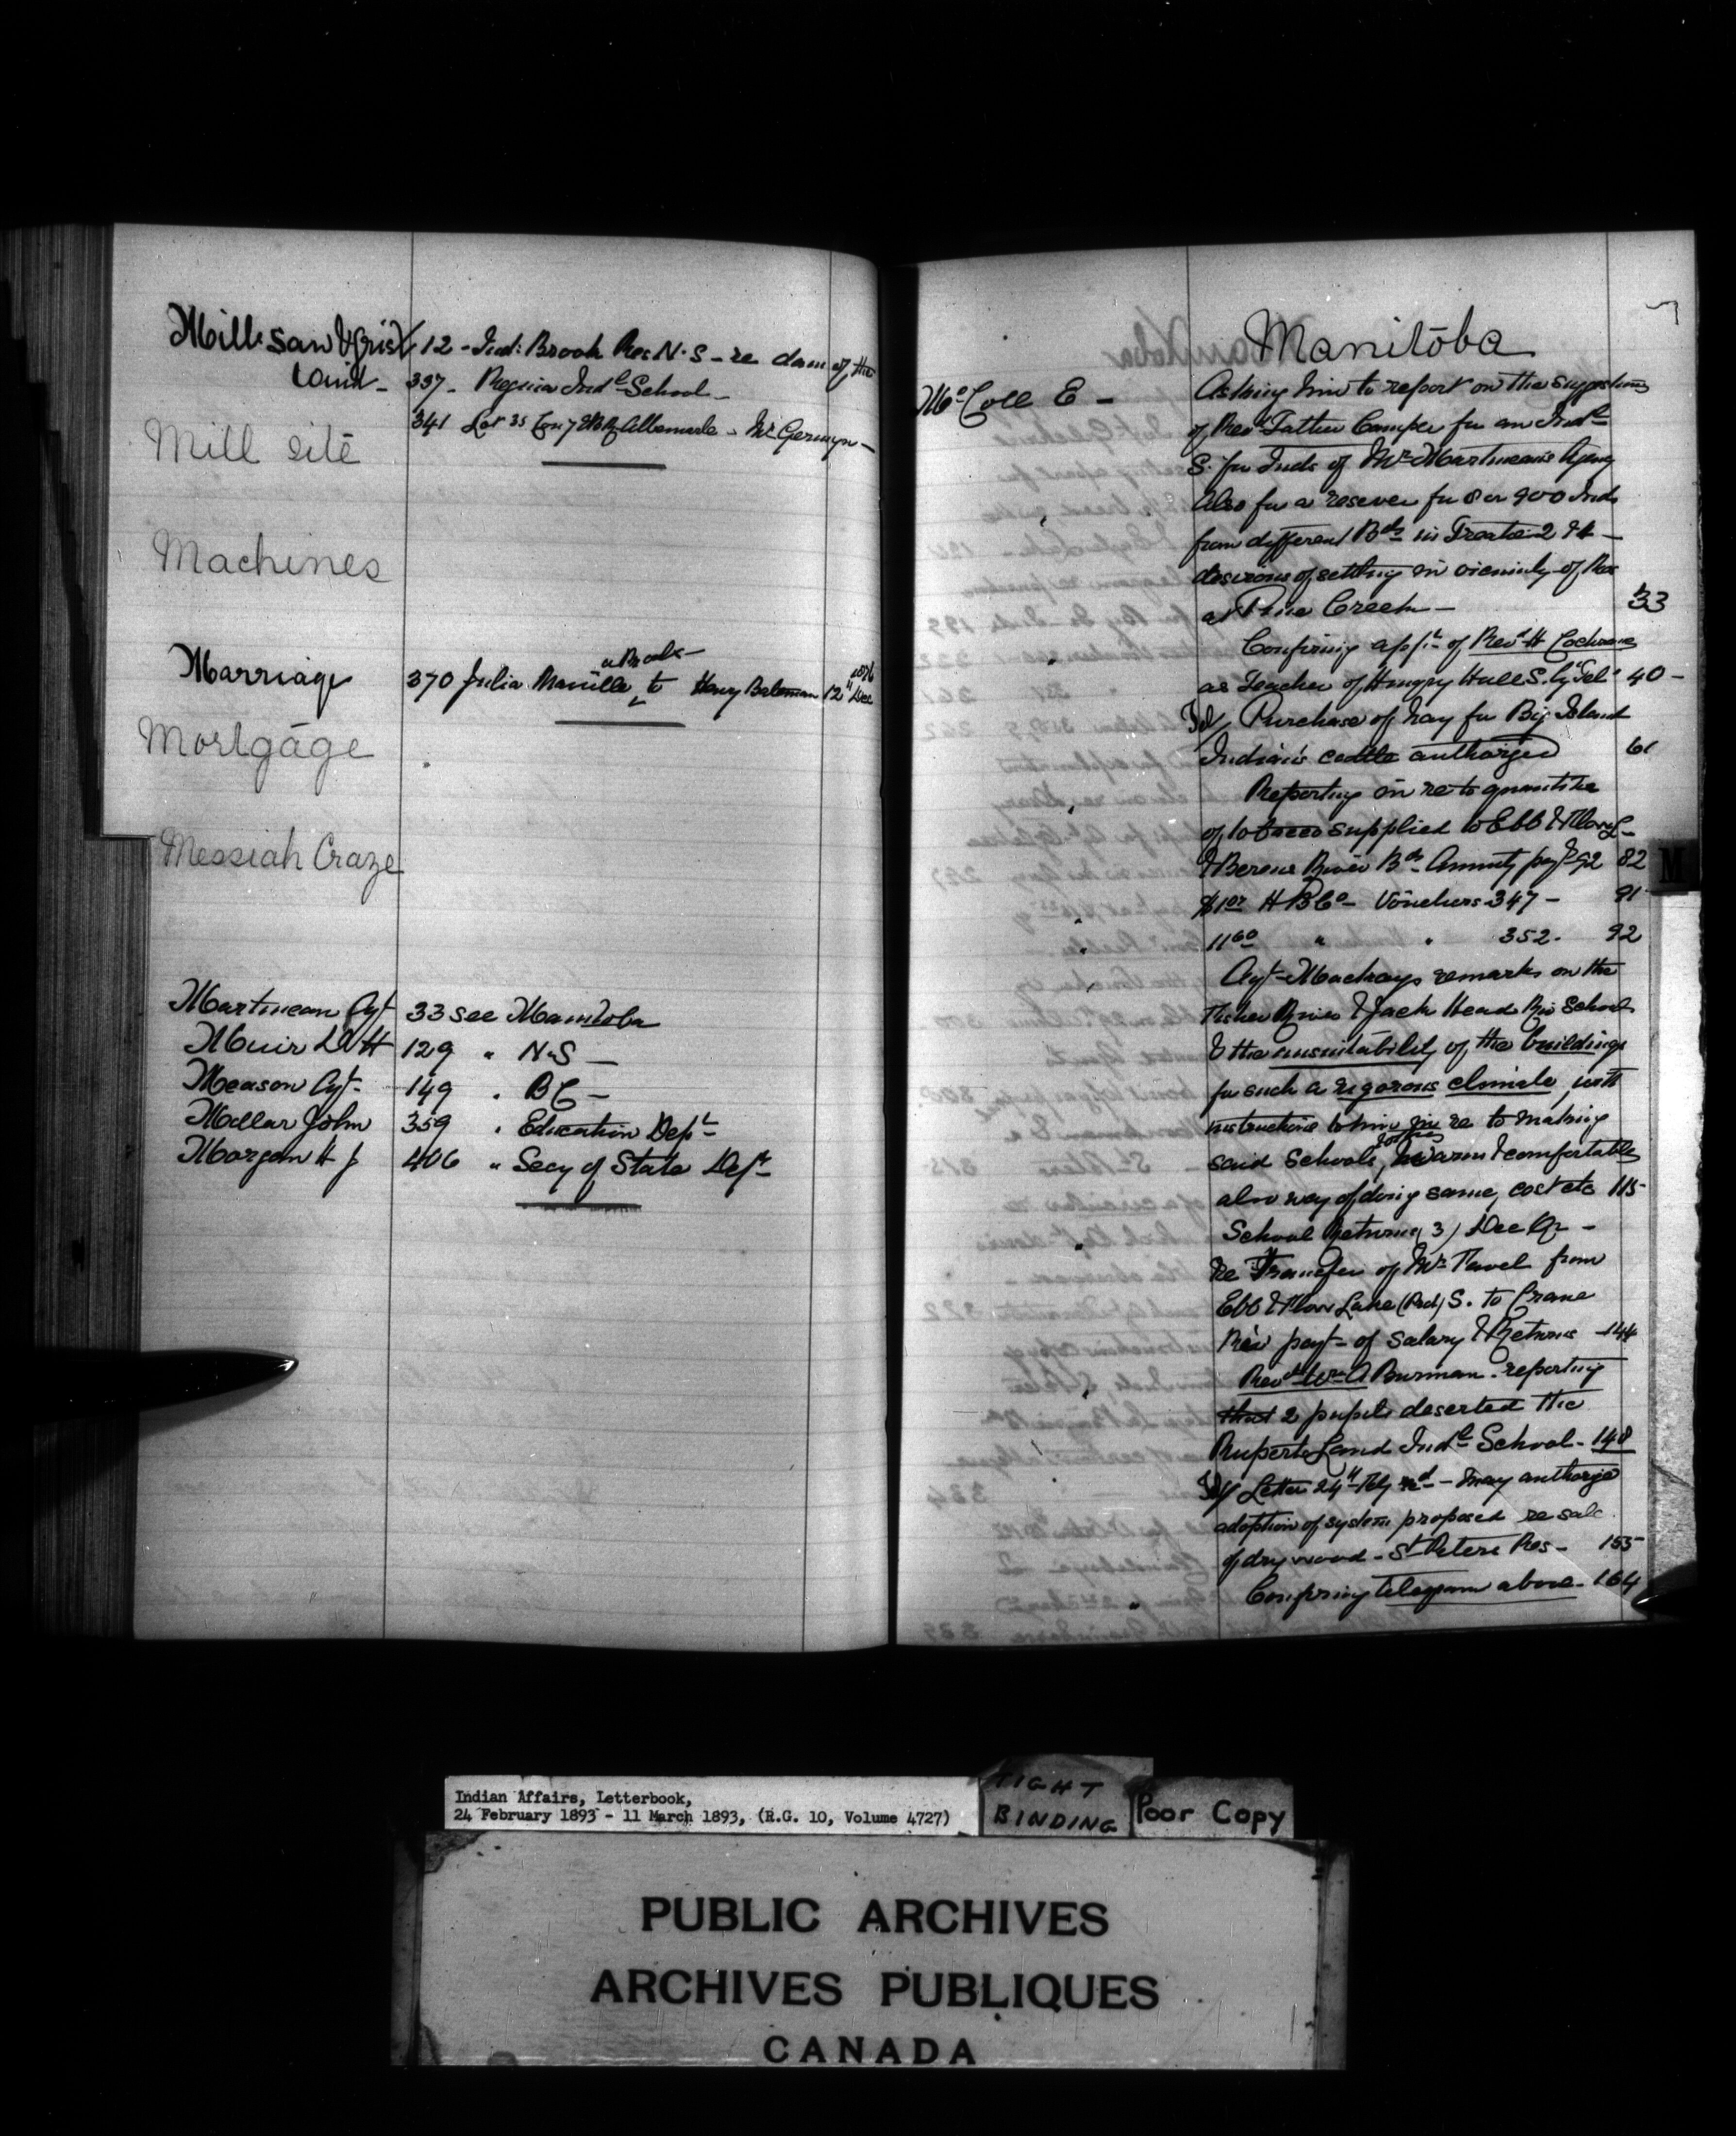 Mill. Saw & Grist 12 - Ind: Brook Res N.S - re dam of the
Land - 337 - Regina Indl School -
341 Lot 35 Con 7 Albemarle - Mr Germyn -
Mill site
Machines
Marriage 370 Julia Maville to Henry Bateman 12" Dec
Mortgage
Messiah Craze
Martineau Agt 33 see Manitoba
Muir D H 129 " N.S -
Meason Agt - 149 " BC -
Mellar John 359 " Education Dept
Morgan H J 406 " Secy of State Dept
Manitoba
McColl E - Asking him to report on the suggestions
of Revd Father Camper for an Indl
S. for Inds of Mr Martineau's Agency
Also for a reserve for 8 or 900 Inds
from different Bds in Treatie 2 & 4 -
desirous of settling in vicinity of Res
at Pine Creek - 33
Confirming appt of Revd H Cochrane
as Teacher of Hungry Hall S. by "Tel" 40 -
Tel/ Purchase of hay for Big Island
Indian's cattle authorized 61
Reporting in re to quantities
of tobacco supplied to Ebb & Flow L -
& Berens River Bds Annuity payt 92 82
H B Co - Vouchers 347 - 91
11 60 " " 352 - 92
Agt Mackays remarks on the
Fisher River & Jack Head Riv Schools
& the unsuitability of the buildings
for such a rigorous climate, with
instructions to him in re to making
said Schools, warm & comfortable
also way of doing same, cost etc 115
School Returns (3) Dec Qr -
Re Transfer of Mr Favel from
Ebb & Flow Lake (Prot) S. to Crane
Riv payt - of salary & Returns - 144
Revd Wm A Burman - reporting
that 2 pupils deserted the
Ruperts Land Indl School - 148
Tel/ Letter 24" Feby recd - may authorize
adoption of system proposed re sale
of dry wood - St Peters Res - 155
Confirming telegram above - 164
M
Indian Affairs, Letterbook,
24 February 1893 - 11 March 1893, (R.G. 10, Volume 4727)
TIGHT
BINDING
Poor Copy
PUBLIC ARCHIVES
ARCHIVES PUBLIQUES
CANADA